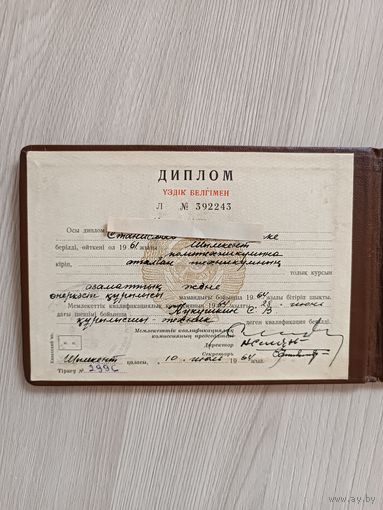 ДИПЛОМ
ҮЗДІК БЕЛГІМЕН
Л № 392243
Осы диплом Станислав ке
берілді, өйткені ол 1961 жылы Шымкент
политехникумға
кіріп, аталған техникумның
толық курсын
азаматтық және
өнеркәсіп құрылысы мамандығы бойынша 1964 бітіріп шықты.
Мемлекеттік квалификациялық 1964
дағы бойынша Кукушкин С. В
құрылысшы-техник деген квалификация берілді.
Мемлекеттік квалификациялық
комиссияның председателі
Директор
Секретарь
Шымкент қаласы, 10 июль 1964 жыл.
Тіркеу № 2996
ay.by